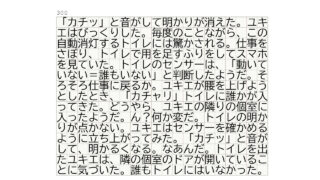 300
「カチッ」と音がして明かりが消えた。ユキ
エはびっくりした。毎度のことながら、この
自動消灯するトイレには驚かされる。仕事を
さぼり、トイレで用を足すふりをしてスマホ
を見ていた。トイレのセンサーは、「動いて
いない＝誰もいない」と判断したようだ。そ
ろそろ仕事に戻るか。ユキエが腰を上げよう
としたとき、「カチャリ」トイレに誰かが入
ってきた。どうやら、ユキエの隣りの個室に
入ったようだ。ん？何か変だ。トイレの明か
りが点かない。ユキエはセンサーを確かめる
ように立ち上がってみた。「カチッ」と音が
して、明かるくなる。なあんだ。トイレを出
たユキエは、隣の個室のドアが開いているこ
とに気づいた。誰もトイレにはいなかった。